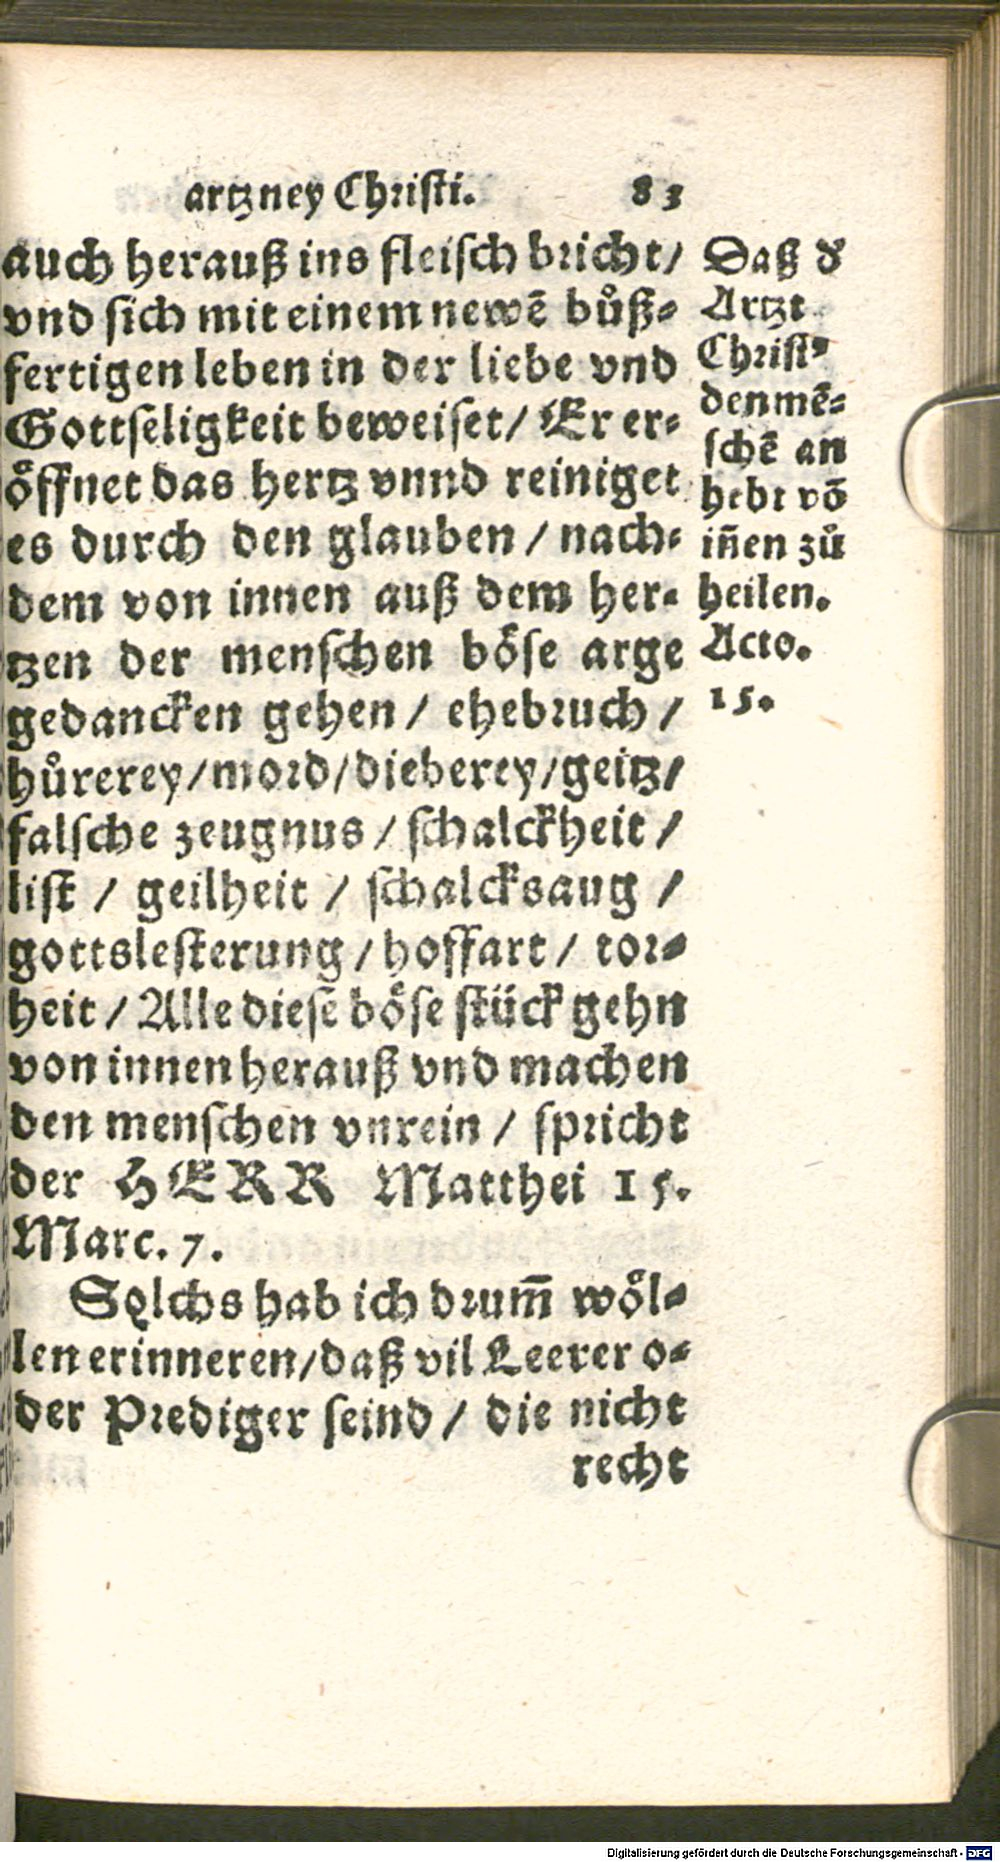 artzney Christi. 83
auch herauß ins fleisch bricht/
vnd sich mit einem newē buͦß-
fertigen leben in der liebe vnd
Gottseligkeit beweiset/ Er er-
oͤffnet das hertz vnnd reiniget
es durch den glauben / nach-
dem von innen auß dem her-
tzen der menschen boͤse arge
gedancken gehen / ehebruch /
huͦrerey/mord/dieberey/geitz/
falsche zeugnus / schalckheit /
list / geilheit / schalcksaug /
gottslesterung / hoffart / tor-
heit / Alle diese boͤse stück gehn
von innen herauß vnd machen
den menschen vnrein / spricht
der HERR Matthei 15.
Marc. 7.
Solchs hab ich drum̄ woͤl-
len erinneren/daß vil Leerer o-
der Prediger seind / die nicht
recht
Daß d'
Artzt
Christꝰ
den mē-
schē an
hebt vō
iñen zuͦ
heilen.
Acto.
15.
Digitalisierung gefördert durch die Deutsche Forschungsgemeinschaft - DFG